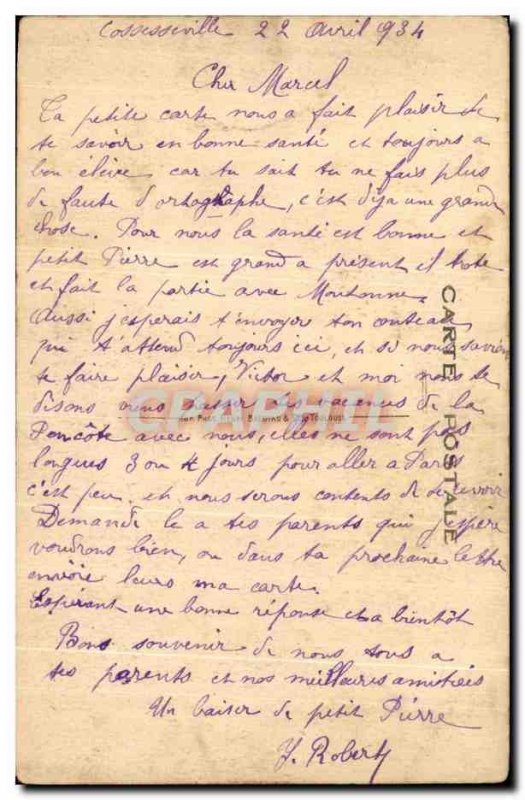 Cossesseville 22 avril 934
Cher Marcel
Ta petite carte nous a fait plaisir de
te savoir en bonne santé et toujours a
bon élève car tu sait tu ne fais plus
de faute d'ortographe, c'est dija une grande
chose. Pour nous la santé est bonne et
petit Pierre est grand a présent il trote
et fait la partie avec Moutonne.
Aussi j'esperais t'envoyer ton couteau
qui t'attend toujours ici, et si nous savions
te faire plaisir, Victor et moi nous te
disons viens passer des vacances de la
Pencôte avec nous, elles ne sont pas
longues 3 ou 4 jours pour aller a Paris
c'est peu et nous serons contents de
Demande le a tes parents qui j'espère
voudrons bien, ou dans ta prochaine lettre
envoie leurs ma carte.
Espérant une bonne réponse et a bientôt
Bons souvenir de nous tous a
tes parents et nos meilleures amitiées
Un baiser de petit Pierre
Y. Robert
CARTE POSTALE
CPAPHIL